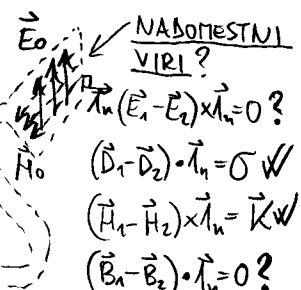 E⃗₀ NADOMESTNI
VIRI?
1⃗ₙ(E⃗₁-E⃗₂)×1⃗ₙ=0?
H⃗₀ (D⃗₁-D⃗₂)•1⃗ₙ=σ W
(H⃗₁-H⃗₂)×1⃗ₙ=K⃗ W
(B⃗₁-B⃗₂)•1⃗ₙ=0?